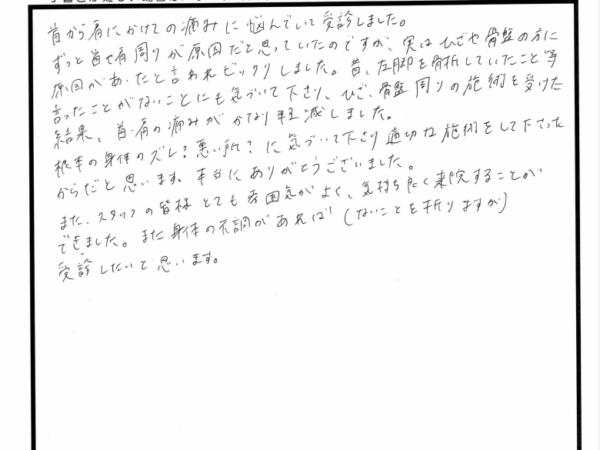 首から肩にかけての痛みに悩んでいて受診しました。
ずっと首や肩周りが原因だと思っていたのですが、実はひざや骨盤の方に
原因があったと言われビックリしました。昔、左脚を骨折していたこと等
言ったことがないことにも気づいて下さり、ひざ、骨盤周りの施術を受けた
結果、首・肩の痛みがかなり軽減しました。
根本の身体のズレ？悪い所？に気づいて下さり適切な施術をして下さった
からだと思います。本当にありがとうございました。
また、スタッフの皆様とても雰囲気がよく、気持ち良く来院することが
できました。また身体の不調があれば（ないことを祈りますが）
受診したいと思います。